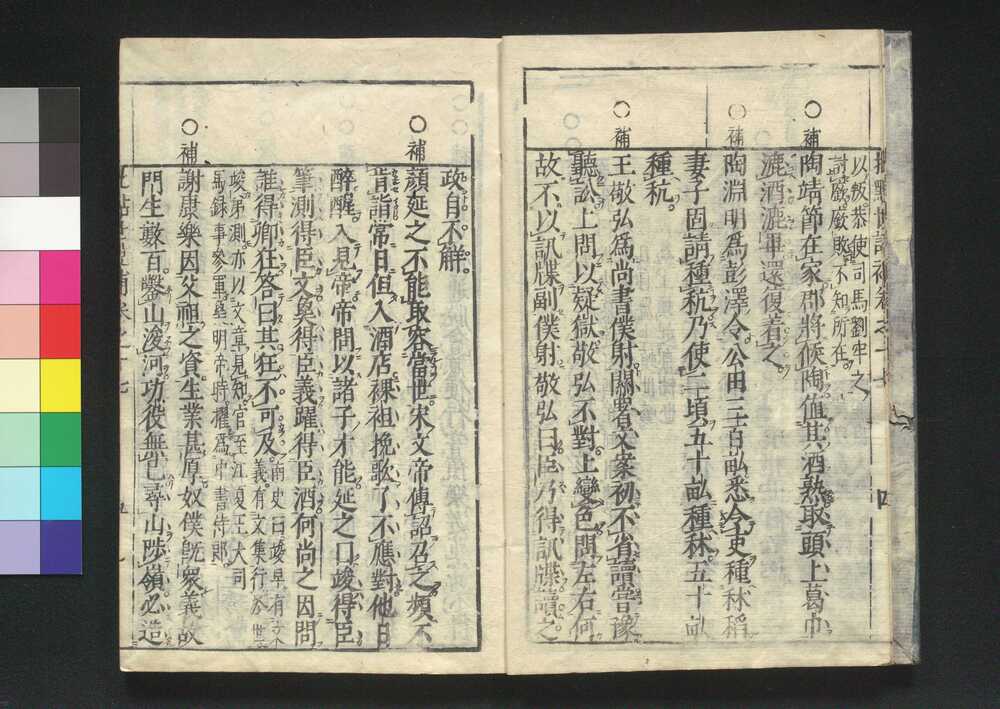 以叛恭使司馬劉牢之
討廞廞敗不知所在
○補
陶靖節在家郡將候陶值其酒熟取頭上葛巾
漉酒漉畢還復著之
○補
陶淵明爲彭澤令公田三百畝悉令吏種秫稻
妻子固請種秔乃使二頃五十畝種秫五十畝
種秔
○補
王敬弘爲尚書僕射關署文案初不省讀嘗豫
聽訟上問以疑獄敬弘不對上變色問左右何
故不以訊牒副僕射敬弘曰臣乃得訊牒讀之
政自不解
○補
顏延之不能取容當世宋文帝傳詔召之頻不
肯詣常日但入酒店裸袒挽歌了不應對他日
醉醒入見帝帝問以諸子才能延之曰竣得臣
筆測得臣文㚟得臣義躍得臣酒何尚之因問
誰得卿狂答曰其狂不可及
南史曰竣早有文
義有文集行於世
竣弟測亦以文章見知官至江夏王大司
馬錄事參軍㚟明帝時擢爲中書侍郎
○補
謝康樂因父祖之資生業甚厚奴僕既衆義故
門生數百鑿山浚河功役無已尋山陟嶺必造